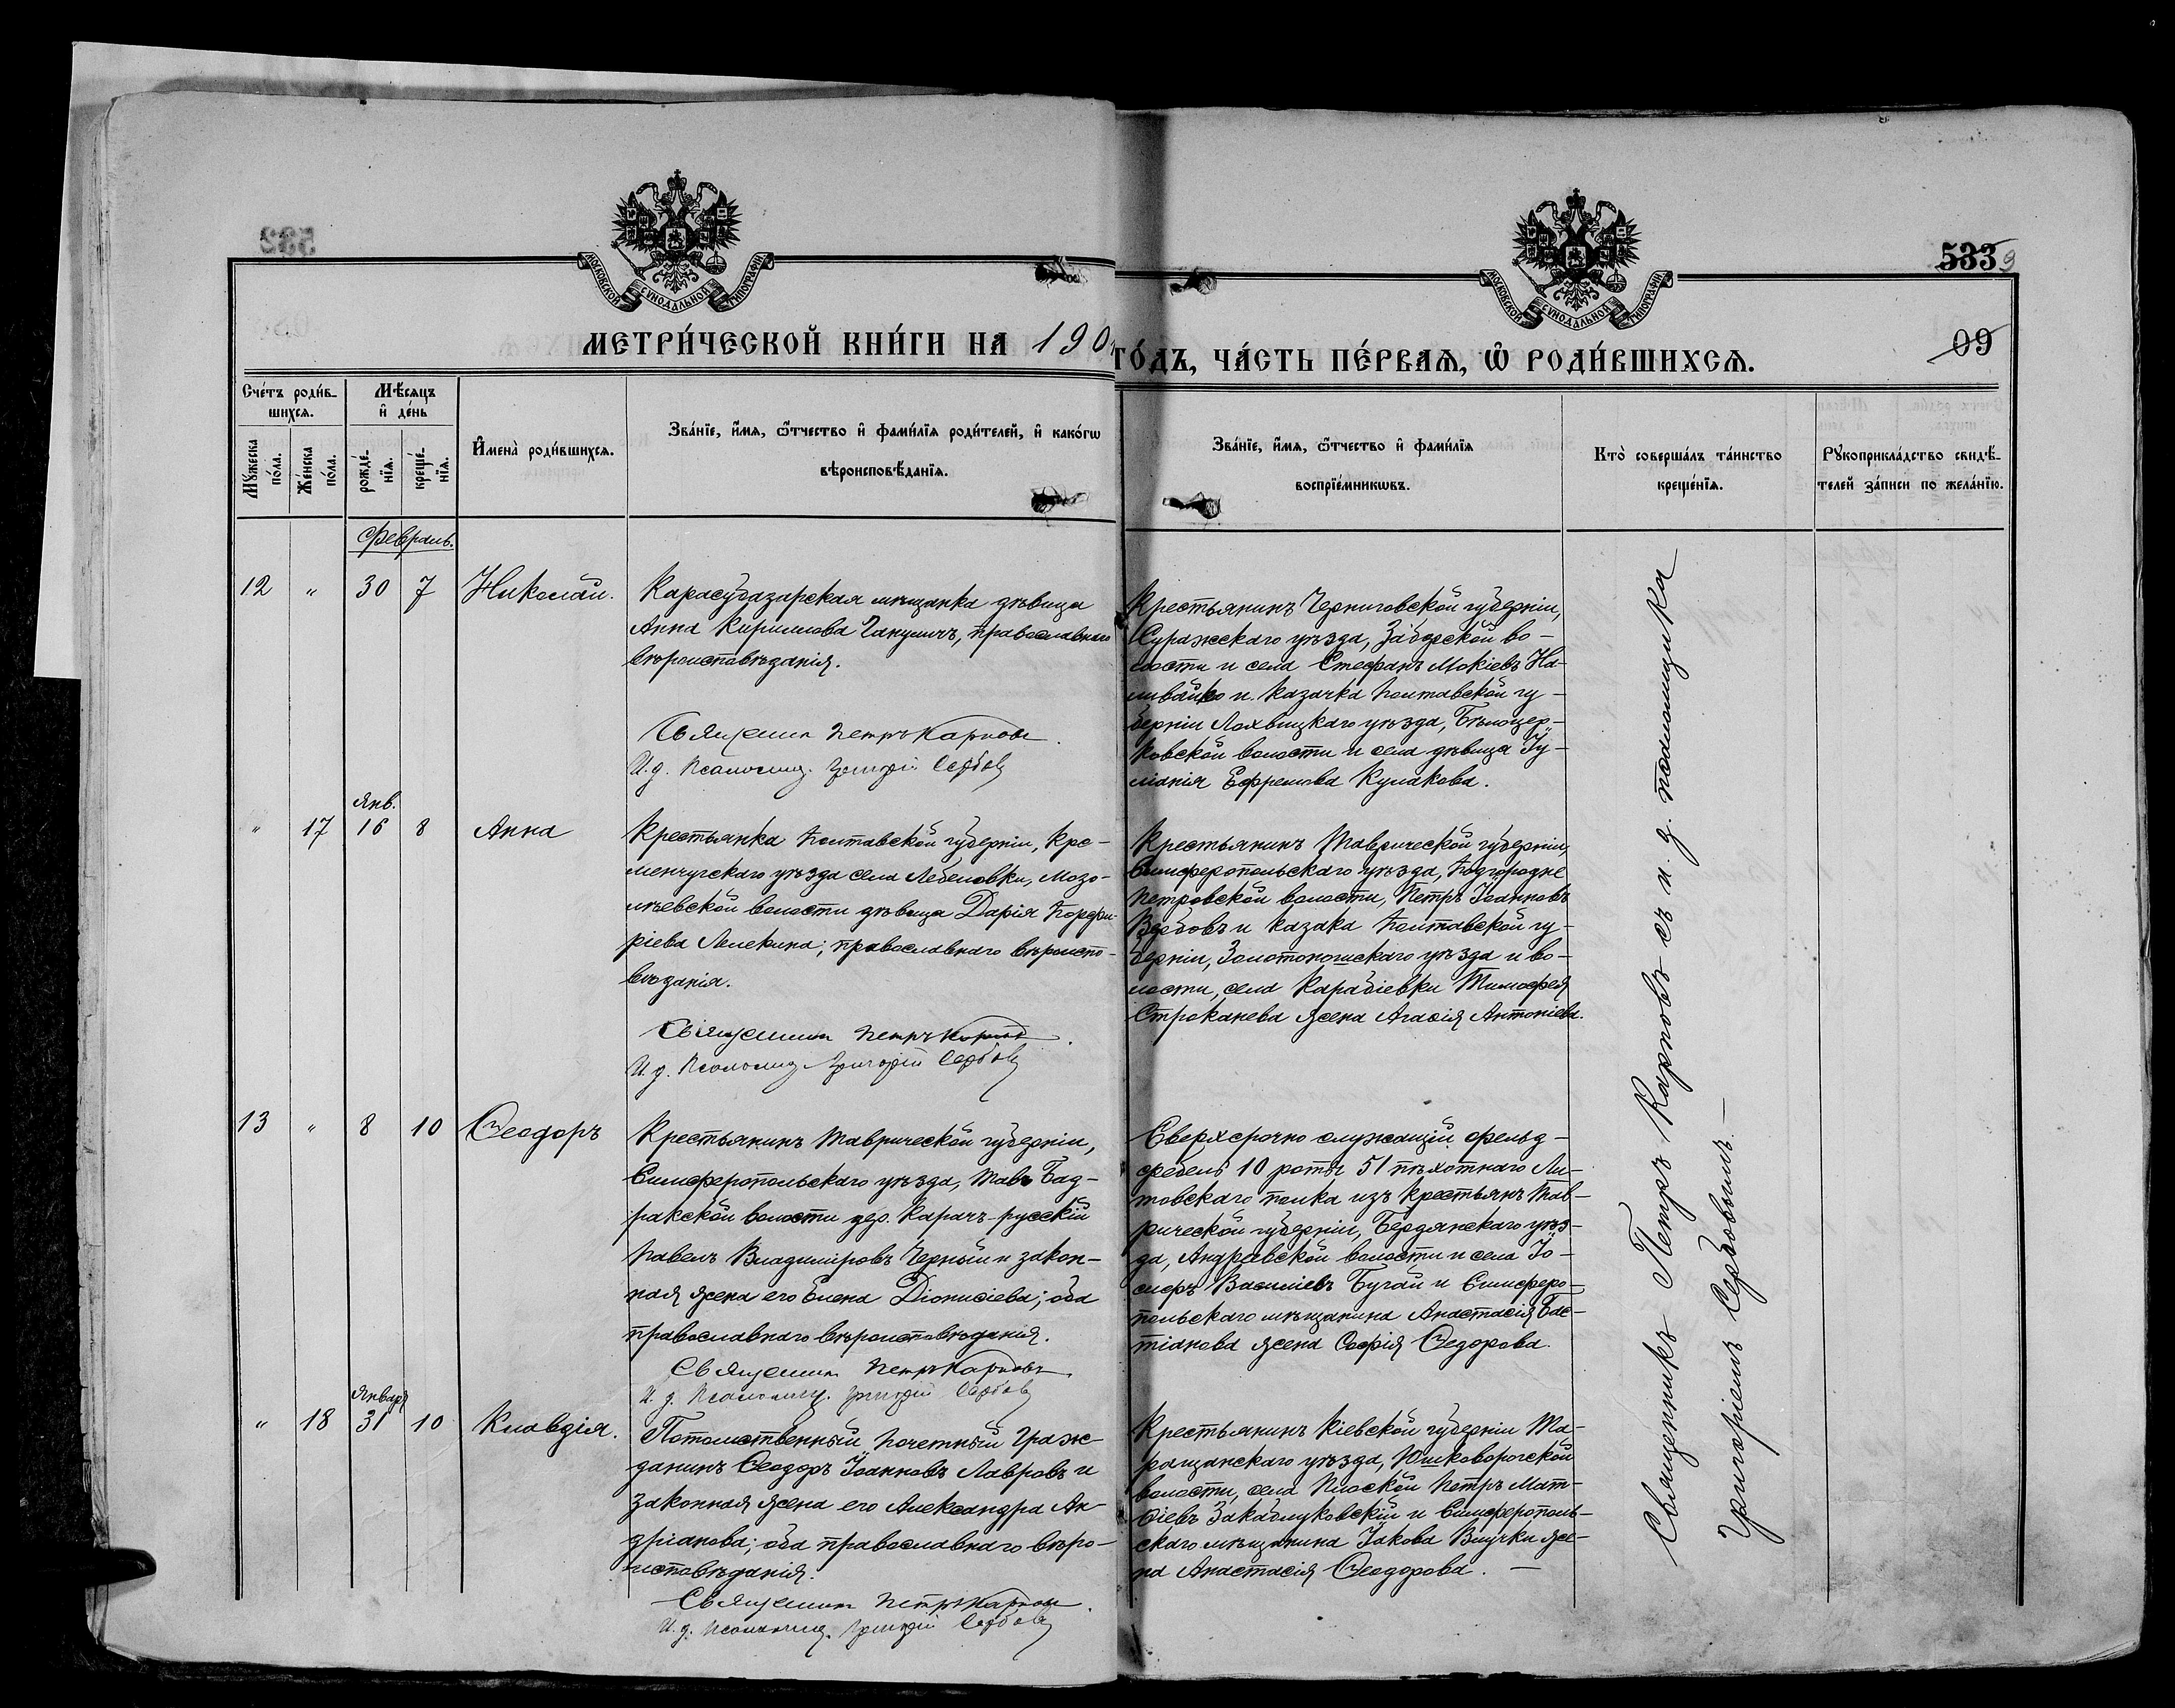 532
533
9
09
МОСКОВСКОЙ СѴНОДАЛЬНОЙ ТИПОГРАФІИ
МОСКОВСКОЙ СѴНОДАЛЬНОЙ ТИПОГРАФІИ
МЕТРИ́ЧЕСКОЙ КНИ́ГИ НА 190
ГО́ДЪ, ЧА́СТЬ ПЕ́РВАѦ, Ѡ҆ РОДИ́ВШИХСѦ.
Сче́тъ роди́в-
шихсѧ.
Мѣ́сѧцъ
и҆ де́нь
Мꙋжеска
по́ла.
Же́нска
по́ла.
рожде́-
нїѧ.
креще́-
нїѧ.
И҆мена̀ роди́вшихсѧ.
Зва́нїе, и҆́мѧ, ѻ҆́тчество и҆ фами́лїѧ роди́телей, и҆ како́гѡ
вѣроисповѣ́данїѧ.
Зва́нїе, и҆́мѧ, ѻ҆́тчество и҆ фами́лїѧ
воспрїе́мникѡвъ.
Кто̀ соверша́лъ та́инство
креще́нїѧ.
Рꙋкоприкла́дство свидѣ́-
телей за́писи по жела́нїю.
Февраль.
12 " 30 7 Николай.
Карасубазарская мѣщанка дѣвица
Анна Кириллова Гакушичъ, православнаго
вѣроисповѣданія.
Священникъ Петръ Карповъ.
И. д. Псаломщ. Григорій Сербовъ
Крестьянинъ Черниговской губерніи,
Суражскаго уѣзда, во-
лости и села Стефанъ Мокіевъ На-
ливайко и казачка Полтавской гу-
берніи Лохвицкаго уѣзда, Бѣлоцер-
ковской волости и села дѣвица Іу-
ліанія Ефремова Кулакова.
Янв.
" 17 16 8 Анна
Крестьянка Полтавской губерніи, Кре-
менчугскаго уѣзда села Лебеловки, Мозо-
лѣевской волости дѣвица Дарія Порфи-
ріева Лелекина; православнаго вѣроиспо-
вѣданія.
Священникъ Петръ Карповъ.
И. д. Псаломщ. Григорій Сербовъ
Крестьянинъ Таврической губерніи,
Симферопольскаго уѣзда, Подгородне
Петровской волости, Петръ Іоанновъ
Вербовъ и казака Полтавской гу-
берніи, Золотоношскаго уѣзда и во-
лости, села Карабіевки Тимофея
Строканева жена Агафія Антоніева.
13 " 8 10 Ѳеодоръ
Крестьянинъ Таврической губерніи,
Симферопольскаго уѣзда, Тавъ Бад-
ракской волости дер. Карачъ-русскій
Павелъ Владиміровъ Черный и закон-
ная жена его Елена Діонисіева; оба
православнаго вѣроисповѣданія.
Священникъ Петръ Карповъ
И. д. Псаломщ. Григорій Сербовъ
Сверхсрочно служащій фельд-
фебель 10 роты 51 пѣхотнаго Ли-
товскаго полка изъ крестьянъ Тав-
рической губерніи, Бердянскаго уѣз-
да, Андравской волости и села Іо-
сифъ Василіевъ Бугай и Симферо-
польскаго мѣщанина Анастасія Бас-
тіанова жена Софія Ѳедорова.
Январь
" 18 31 10 Клавдія.
Потомственный почетный граж-
данинъ Ѳеодоръ Іоанновъ Лавровъ и
законная жена его Александра Ан-
дріанова; оба православнаго вѣро-
исповѣданія.
Священникъ Петръ Карповъ.
И. д. Псаломщ. Григорій Сербовъ
Крестьянинъ Кіевской губерніи Та-
ращанскаго уѣзда, Юшковорогской
волости, села Плоской Петръ Мат-
ѳіевъ Закаблуковскій и Симферополь-
скаго мѣщанина Іакова Внучки же-
на Анастасія Ѳеодорова. —
Священникъ Петръ Карповъ съ и. д. псаломщика
Григоріемъ Сербовымъ. —